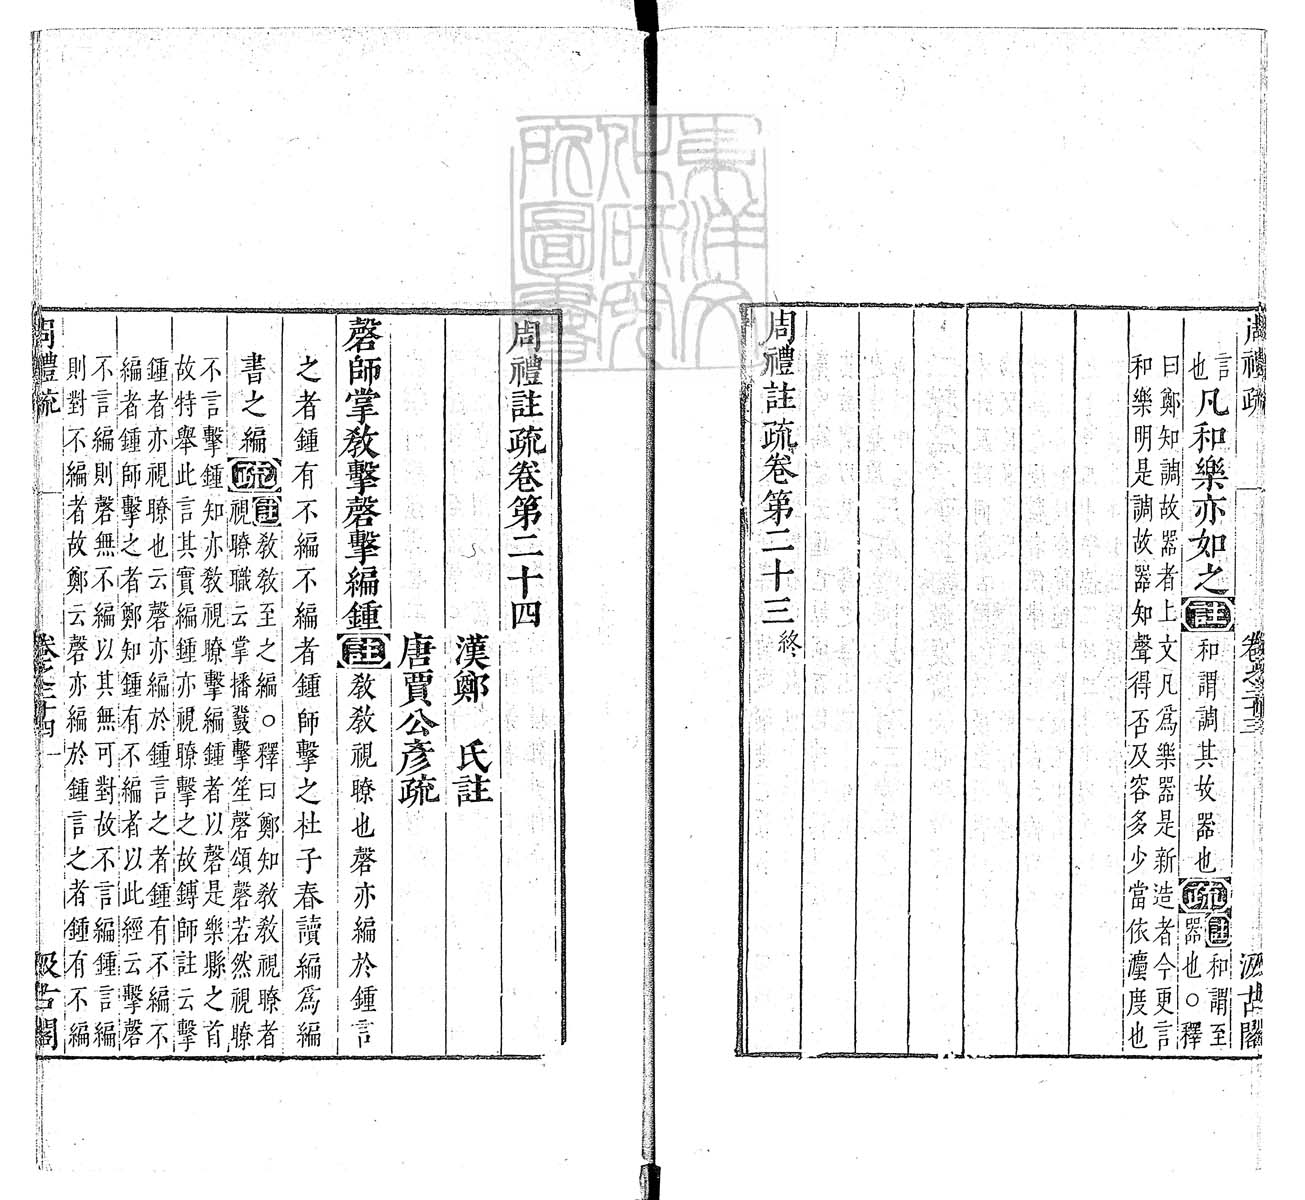 周禮疏 卷之二十三 汲古閣
言
也凡和樂亦如之註和謂調其故器也疏註和謂至
器也○釋
曰鄭知調故器者上文凡爲樂器是新造者今更言
和樂明是調故器知聲得否及容多少當依灋度也
周禮註疏卷第二十三終
東洋文
化研究
所圖書
周禮註疏卷第二十四
漢鄭 氏註
唐賈公彥疏
磬師掌敎擊磬擊編鍾註敎敎視瞭也磬亦編於鍾言
之者鍾有不編不編者鍾師擊之杜子春讀編爲編
書之編疏註敎敎至之編○釋曰鄭知敎敎視瞭者
視瞭職云掌播鼗擊笙磬頌磬若然視瞭
不言擊鍾知亦敎視瞭擊編鍾者以磬是樂縣之首
故特舉此言其實編鍾亦視瞭擊之故鎛師註云擊
鍾者亦視瞭也云磬亦編於鍾言之者鍾有不編不
編者鍾師擊之者鄭知鍾有不編者以此經云擊磬
不言編則磬無不編以其無可對故不言編鍾言編
則對不編者故鄭云磬亦編於鍾言之者鍾有不編
周禮疏 卷之二十四 一 汲古閣